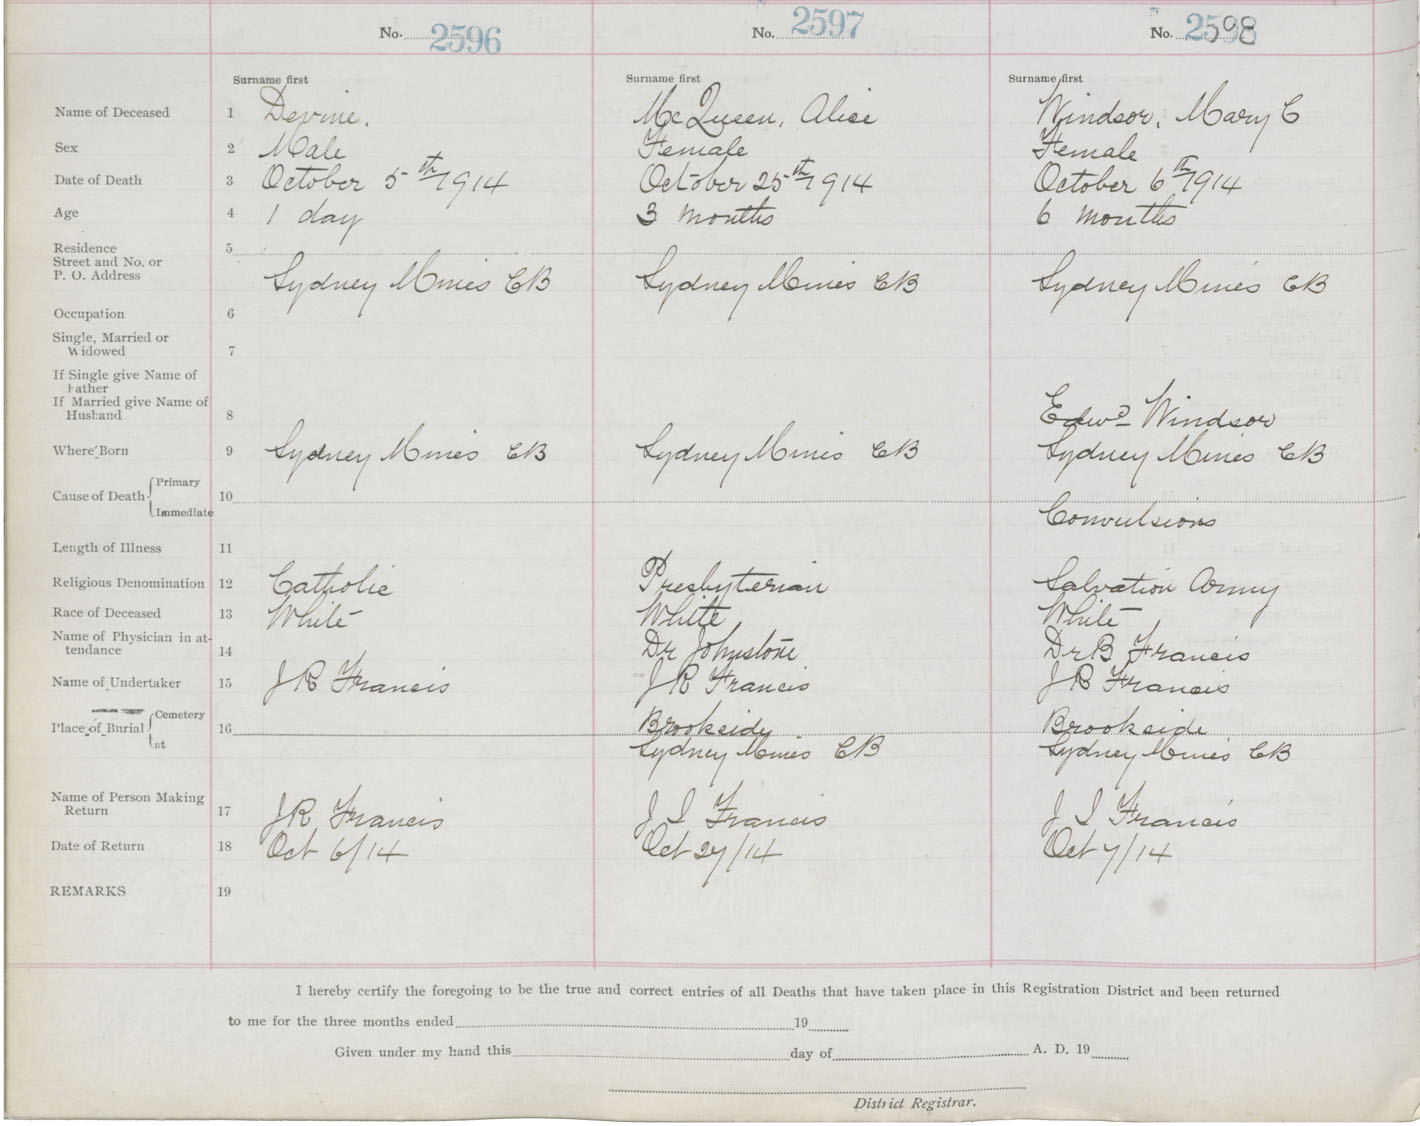 No. 2596 No. 2597 No. 2598
Surname first Surname first Surname first
Name of Deceased 1 Devine. McQueen, Alice Windsor, Mary C
Sex 2 Male Female Female
Date of Death 3 October 5th 1914 October 25th 1914 October 6th 1914
Age 4 1 day 3 months 6 months
Residence 5
Street and No. or
P. O. Address Sydney Mines CB Sydney Mines CB Sydney Mines CB
Occupation 6
Single, Married or
Widowed 7
If Single give Name of
Father
If Married give Name of
Husband 8 Edwd Windsor
Where Born 9 Sydney Mines CB Sydney Mines CB Sydney Mines CB
Primary
Cause of Death 10
Immediate Convulsions
Length of Illness 11
Religious Denomination 12 Catholic Presbyterian Salvation Army
Race of Deceased 13 White White White
Name of Physician in at-
tendance 14 Dr Johnstone Dr B Francis
Name of Undertaker 15 J R Francis J R Francis J R Francis
Cemetery
Place of Burial 16 Brookside Brookside
at Sydney Mines CB Sydney Mines CB
Name of Person Making
Return 17 J R Francis J I Francis J I Francis
Date of Return 18 Oct 6/14 Oct 27/14 Oct 7/14
REMARKS 19
I hereby certify the foregoing to be the true and correct entries of all Deaths that have taken place in this Registration District and been returned
to me for the three months ended 19
Given under my hand this day of A. D. 19
District Registrar.